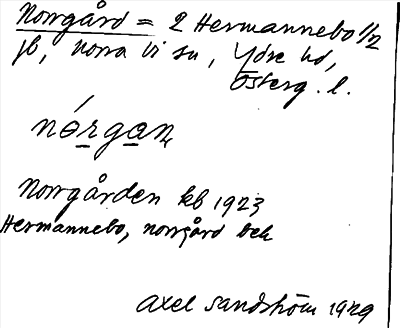 Norrgård = 2 Hermannebo 1/2
jb, norra Vi sn, Ydre hd,
Österg. l.
nórgan
Norrgården kb 1923
Hermannebo, norrgård bek
Axel Sandström 1929